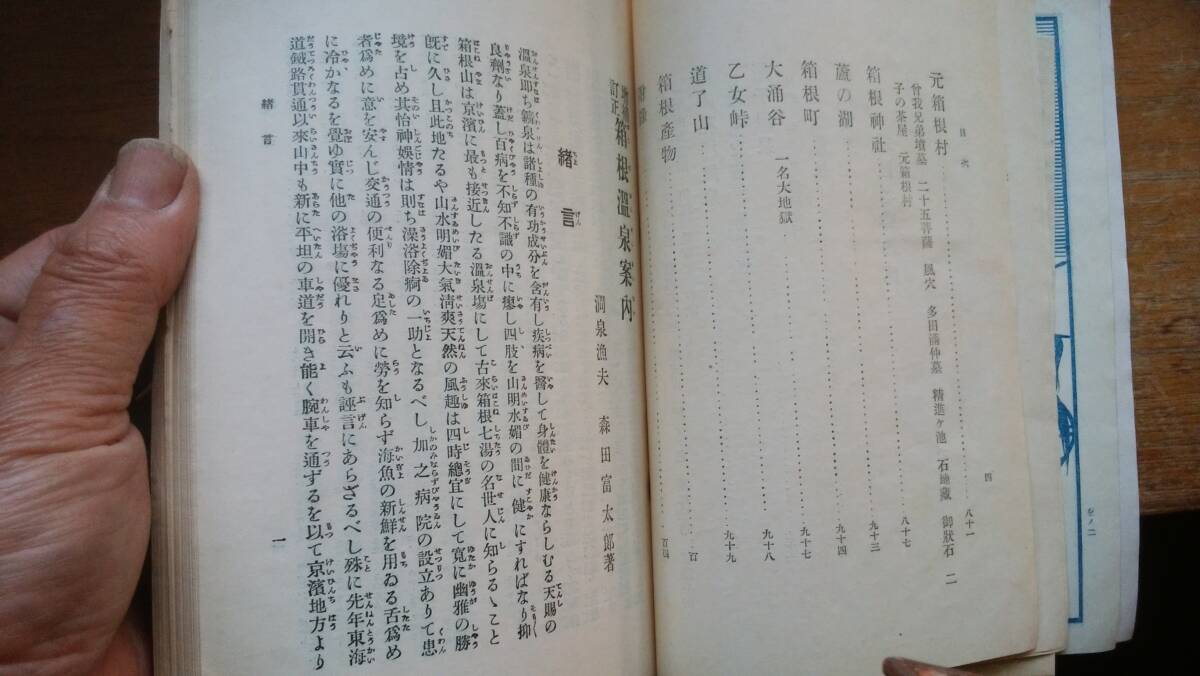 目次
四
元箱根村……八十一
曾我兄弟墳墓 二十五菩薩 風穴 多田滿仲墓 精進ケ池 石地藏 御狀石 二
子の茶屋 元箱根村
箱根神社……九十三
蘆の湖……九十四
箱根町……九十七
大涌谷 一名大地獄……九十八
乙女峠……九十九
道了山……百
箱根產物
箱根溫泉案內
澗泉漁夫 森田富太郞著
緖言
溫泉卽ち鑛泉は諸種の有功成分を含有し疾病を醫して身體を健康ならしむる天賜の
良劑なり蓋し百病を不知不識の中に瘳し四肢を山明水媚の間に健にすればなり抑
箱根山は京濱に最も接近したる溫泉塲にして古來箱根七湯の名世人に知らるゝこと
旣に久し且此地たるや山水明媚大氣淸爽天然の風趣は四時總宜にして寬に幽雅の勝
境を占め其怡神娛情は則ち澡浴除痾の一助となるべし加之病院の設立ありて患
者爲めに意を安んじ交通の便利なる足爲めに勞を知らず海魚の新鮮を用ゐる舌爲め
に冷かなるを覺ゆ實に他の浴塲に優れりと云ふも誣言にあらざるべし殊に先年東海
道鐵路貫通以來山中も新に平坦の車道を開き能く腕車を通ずるを以て京濱地方より
緖言
一